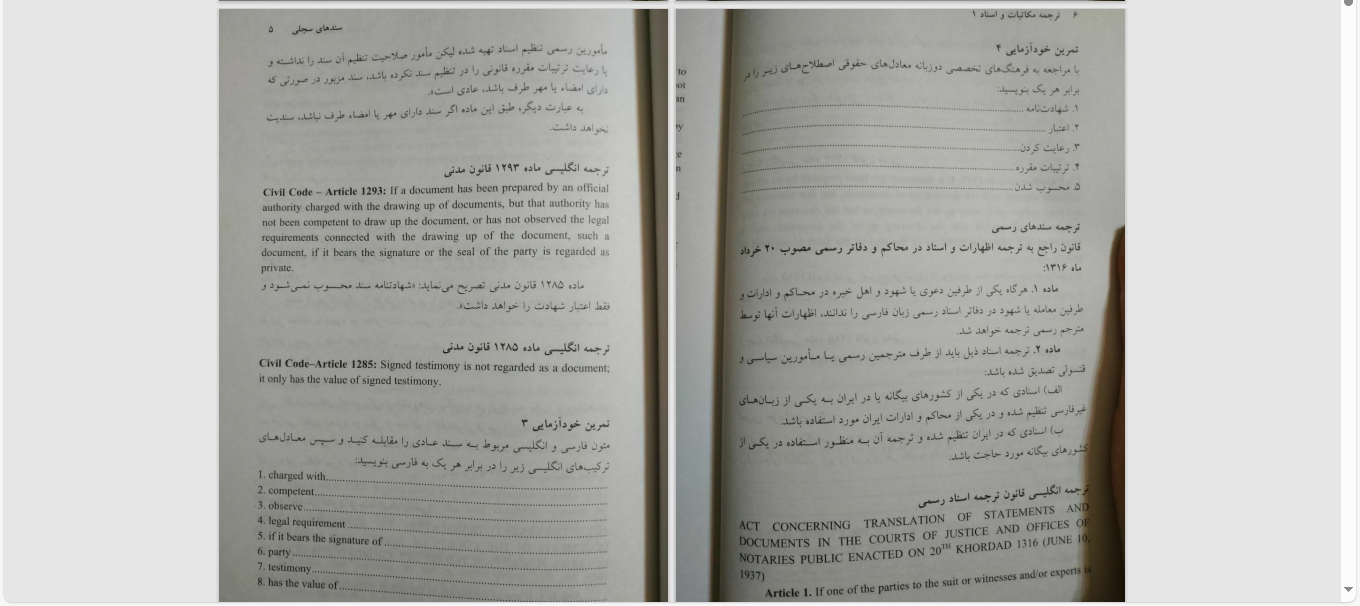 سندهای سجلی ۵
مأمورین رسمی تنظیم اسناد تهیه شده لیکن مأمور صلاحیت تنظیم آن سند را نداشته و
یا رعایت ترتیبات مقرره قانونی را در تنظیم سند نکرده باشد، سند مزبور در صورتی که
دارای امضاء یا مهر طرف باشد، عادی است».
به عبارت دیگر، طبق این ماده اگر سند دارای مهر یا امضاء طرف نباشد، سندیت
نخواهد داشت.
ترجمه انگلیسی ماده ۱۲۹۳ قانون مدنی
Civil Code – Article 1293: If a document has been prepared by an official
authority charged with the drawing up of documents, but that authority has
not been competent to draw up the document, or has not observed the legal
requirements connected with the drawing up of the document, such a
document, if it bears the signature or the seal of the party is regarded as
private.
ماده ۱۲۸۵ قانون مدنی تصریح می‌نماید: «شهادتنامه سند محسوب نمی‌شود و
فقط اعتبار شهادت را خواهد داشت».
ترجمه انگلیسی ماده ۱۲۸۵ قانون مدنی
Civil Code–Article 1285: Signed testimony is not regarded as a document;
it only has the value of signed testimony.
تمرین خودآزمایی ۳
متون فارسی و انگلیسی مربوط به سند عادی را مقابله کنید و سپس معادل‌های
ترکیب‌های انگلیسی زیر را در برابر هر یک به فارسی بنویسید:
1. charged with
2. competent
3. observe
4. legal requirement
5. if it bears the signature of
6. party
7. testimony
8. has the value of
۶ ترجمه مکاتبات و اسناد ۱
تمرین خودآزمایی ۴
با مراجعه به فرهنگ‌های تخصصی دوزبانه معادل‌های حقوقی اصطلاح‌های زیر را در
برابر هر یک بنویسید:
۱. شهادت‌نامه
۲. اعتبار
۳. رعایت کردن
۴. ترتیبات مقرره
۵. محسوب شدن
ترجمه سندهای رسمی
قانون راجع به ترجمه اظهارات و اسناد در محاکم و دفاتر رسمی مصوب ۲۰ خرداد
ماه ۱۳۱۶:
ماده ۱. هرگاه یکی از طرفین دعوی یا شهود و اهل خبره در محاکم و ادارات و
طرفین معامله یا شهود در دفاتر اسناد رسمی زبان فارسی را ندانند، اظهارات آنها توسط
مترجم رسمی ترجمه خواهد شد.
ماده ۲. ترجمه اسناد ذیل باید از طرف مترجمین رسمی یا مأمورین سیاسی و
قنسولی تصدیق شده باشد:
الف) اسنادی که در یکی از کشورهای بیگانه یا در ایران به یکی از زبان‌های
غیرفارسی تنظیم شده و در یکی از محاکم و ادارات ایران مورد استفاده باشد.
ب) اسنادی که در ایران تنظیم شده و ترجمه آن به منظور استفاده در یکی از
کشورهای بیگانه مورد حاجت باشد.
ترجمه انگلیسی قانون ترجمه اسناد رسمی
ACT CONCERNING TRANSLATION OF STATEMENTS AND
DOCUMENTS IN THE COURTS OF JUSTICE AND OFFICES OF
NOTARIES PUBLIC ENACTED ON 20TH KHORDAD 1316 (JUNE 10,
1937)
Article 1. If one of the parties to the suit or witnesses and/or experts is